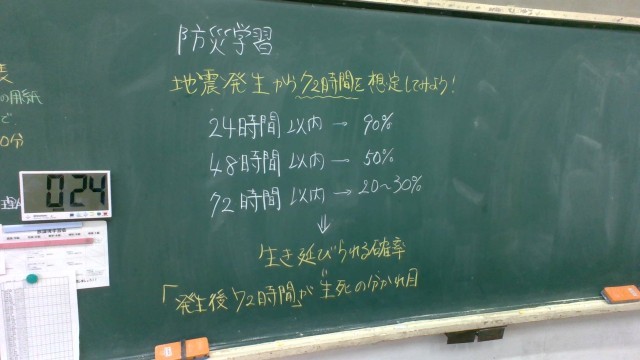 防災学習
地震発生から72時間を想定してみよう!
24時間以内 → 90%
48時間以内 → 50%
72時間以内 → 20~30%
⇓
生き延びられる確率
「発生後72時間」が生死の分かれ目
の用紙
で
0分
024